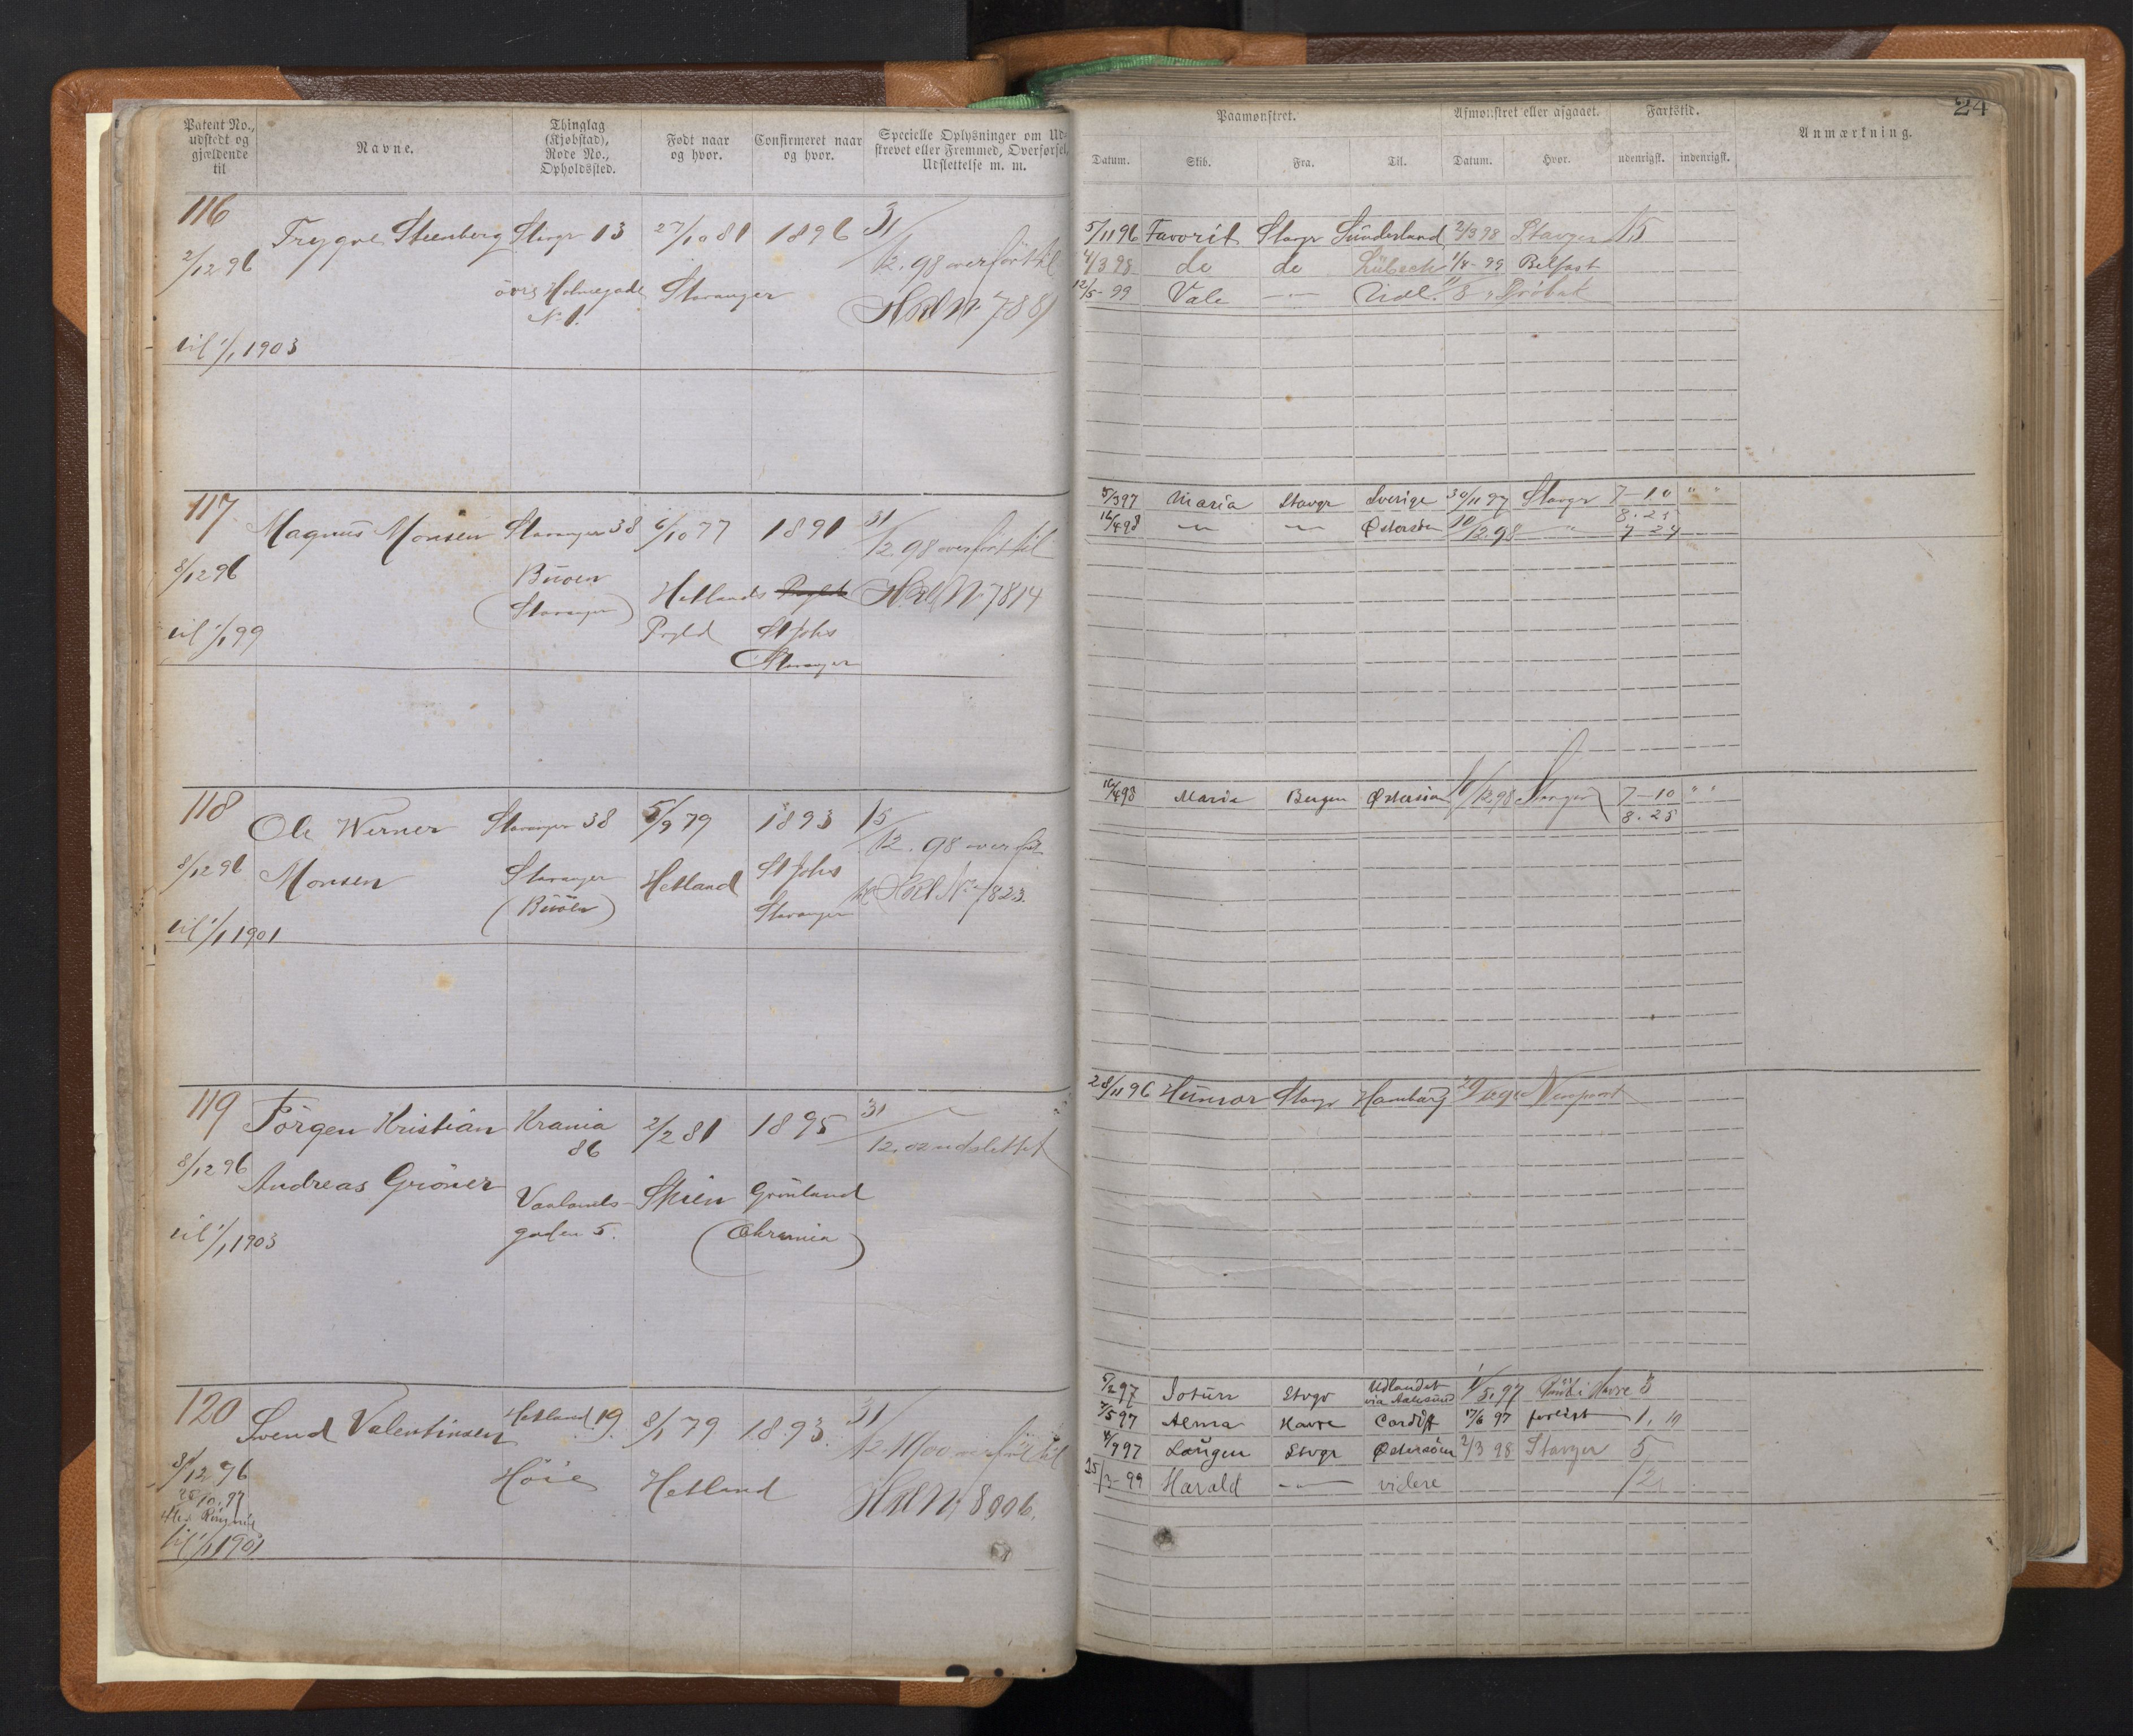 Patent No., udstedt og gjældende til
Navne.
Thinglag (Kjøbstad), Rode No., Opholdssted.
Født naar og hvor.
Confirmeret naar og hvor.
Specielle Oplysninger om Udstrevet eller Fremmed, Overførsel, Udslettelse m. m.
116
2/12 96
til 1/1 1903
Trygve Steenberg
Stvgr 13
övre Holmegade
No 1.
27/10 81
Stavanger
1896
31/12. 98 overført til
Hovl No 7881
117
8/12 96
til 1/1 99
Magnus Monsen
Stavanger 38
Buöen
(Stavanger)
6/10 77
Hetlands
Prgld
1891
St Johs
Stavanger
31/12 98 overført til
Hovl No 7814
118
8/12 96
til 1/1 1901
Ole Werner
Monsen
Stavanger 38
Stavanger
(Buöen)
5/9 79
Hetland
1893
St Johs
Stavanger
15/12. 98 overført
til Hovl No 7823.
119
8/12 96
til 1/1 1903
Jörgen Kristian
Andreas Gröner
Krania
86
Vaalands-
gaden 5.
2/2 81
Skien
1895
Grönland
(Chrania)
31/12. 02 udslettet
120
8/12 96
til 1/1 1901
Svend Valentinsen
Hetland 19.
Höie
8/1 79
Hetland
1893.
31/12 1900 overført til
Hovl No 8006.
24
Paamønstret.
Afmønstret eller afgaaet.
Fartstid.
Anmærkning.
Datum.
Skib.
Fra.
Til.
Datum.
Hvor.
udenrigsk.
indenrigsk.
5/11 96 Favorit Stavgr Sunderland 2/3 98 Stavger 15
4/3 98 do do Lübeck 1/4 - 99 Belfast
12/5 - 99 Vale —"— Udl. 11/8 - " Dröbak
5/3 97 Maria Stavgr Sverige 30/11 97 Stavgr 7-10 " "
8. 25
16/4 98 —"— —"— Østersøen 10/12 98 " 7 24
16/4 98 Maria Bergen Østersiøn 10/12 98 Stavanger 7-10 " "
8. 25
28/11 96 Hunsor Stavgr Hamburg
5/2 97 Jotun Stvgr Udlandet via Aalesund 1/5. 97 Havre 3
7/5 97 Alma Havre Cardiff 17/6 97 forlist 1. 10
4/9 97 Laugen Stvgr Østersöen 2/3 98 Stavger 5
25/3 - 99 Harald —"— videre 12